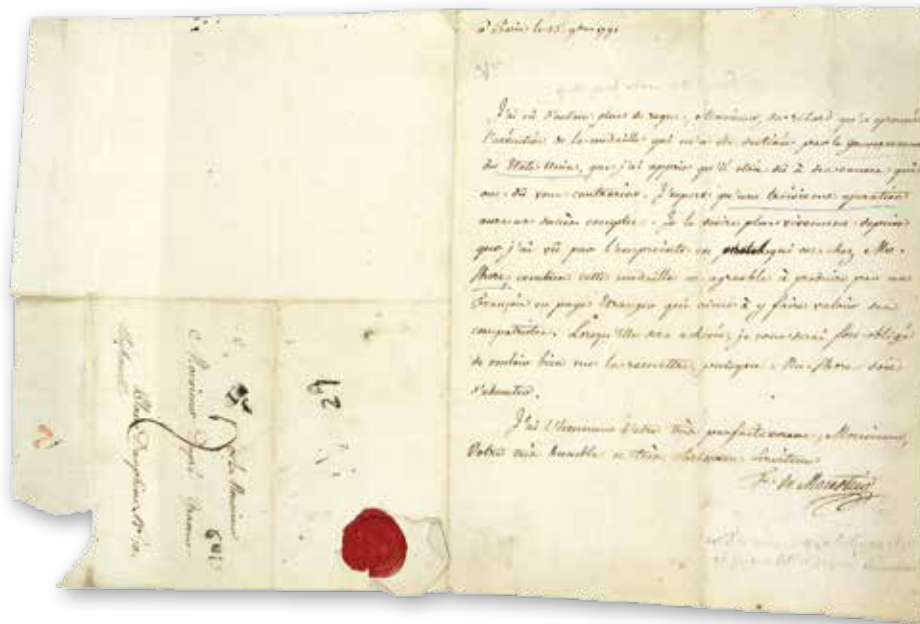 à Paris le 15. 9bre 1791
J'ai eu d'autant plus de regret, Monsieur, du retard qu'a éprouvé
l'exécution de la médaille qui m'a été destinée par le gouvernement
des Etats Unis, que j'ai appris qu'il étoit dû à des causes qui
ont dû vous contrarier. J'espere qu'une troisieme opération
aura un succès complet. Je le desire plus vivement depuis
que j'ai vû par l'empreinte en qui est chez Mr.
Short, combien cette médaille est agreable à produire par un
François en pays Etranger qui aime à y faire valoir ses
compatriotes. Lorsqu'Elle sera achevée, je vous serai fort obligé
de vouloir bien me la remettre, puisque Mr. Short doit
s'absenter.
J'ai l'honneur d'être très parfaitement, Monsieur,
Votre très humble et très obéissant Serviteur
F. de Moustier
62
A Monsieur
Monsieur Dupré Graveur
Place Dauphine No. 10.